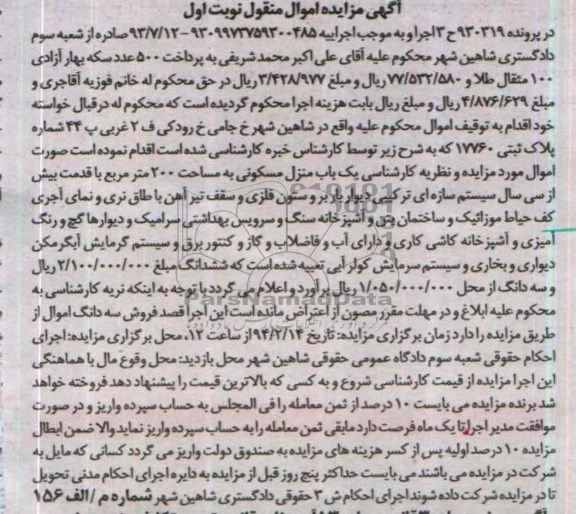 آگهی مزایده اموال منقول نوبت اول
در پرونده ۹۳۰۳۱۹ ح ۳ اجرا و به موجب اجراییه ۹۳۰۹۹۷۳۷۵۹۳۰۰۴۸۵-۹۳/۷/۱۲ صادره از شعبه سوم
دادگستری شاهین شهر محکوم علیه آقای علی اکبر محمد شریفی به پرداخت ۵۰۰ عدد سکه بهار آزادی
۱۰۰ مثقال طلا و ۷۷/۵۳۲/۵۸۰ ریال و مبلغ ۳/۴۲۸/۹۷۷ ریال در حق محکوم له خانم فوزیه آقاجری و
مبلغ ۴/۸۷۶/۶۲۹ ریال و مبلغ ریال بابت هزینه اجرا محکوم گردیده است که محکوم له در قبال خواسته
خود اقدام به توقیف اموال محکوم علیه واقع در شاهین شهر خ جامی خ رودکی ف ۲ غربی پ ۴۴ شماره
پلاک ثبتی ۱۷۷۶۰ که به شرح زیر توسط کارشناس خبره کارشناسی شده است اقدام نموده است صورت
اموال مورد مزایده و نظریه کارشناسی یک باب منزل مسکونی به مساحت ۲۰۰ متر مربع با قدمت بیش
از سی سال سیستم سازه ای ترکیبی دیوار باربر و ستون فلزی و سقف تیر آهن با طاق نری و نمای آجری
کف حیاط موزائیک و ساختمان بتن و آشپزخانه سنگ و سرویس بهداشتی سرامیک و دیوارها گچ و رنگ
آمیزی و آشپزخانه کاشی کاری و دارای آب و فاضلاب و گاز و کنتور برق و سیستم گرمایش آبگرمکن
دیواری و بخاری و سیستم سرمایش کولر آبی تعبیه شده است که ششدانگ مبلغ ۲/۱۰۰/۰۰۰/۰۰۰ ریال
و سه دانگ از محل ۱/۰۵۰/۰۰۰/۰۰۰ ریال برآورد و اعلام می گردد با توجه به اینکه نریه کارشناسی به
محکوم علیه ابلاغ و در مهلت مقرر مصون از اعتراض مانده است این اجرا قصد فروش سه دانگ اموال از
طریق مزایده را دارد زمان برگزاری مزایده: تاریخ ۹۴/۲/۱۴ از ساعت ۱۲. محل برگزاری مزایده: اجرای
احکام حقوقی شعبه سوم دادگاه عمومی حقوقی شاهین شهر محل بازدید: محل وقوع مال با هماهنگی
این اجرا مزایده از قیمت کارشناسی شروع و به کسی که بالاترین قیمت را پیشنهاد دهد فروخته خواهد
شد برنده مزایده می بایست ۱۰ درصد از ثمن معامله را فی المجلس به حساب سپرده واریز و در صورت
موافقت مدیر اجرا تا یک ماه فرصت دارد مابقی ثمن معامله را به حساب سپرده واریز نماید والا ضمن ابطال
مزایده ۱۰ درصد اولیه پس از کسر هزینه های مزایده به صندوق دولت واریز می گردد کسانی که مایل به
شرکت در مزایده می باشند می بایست حداکثر پنج روز قبل از مزایده به دایره اجرای احکام مدنی تحویل
تا در مزایده شرکت داده شوند اجرای احکام ش ۳ حقوقی دادگستری شاهین شهر شماره م/الف ۱۵۶
ParsNamadData